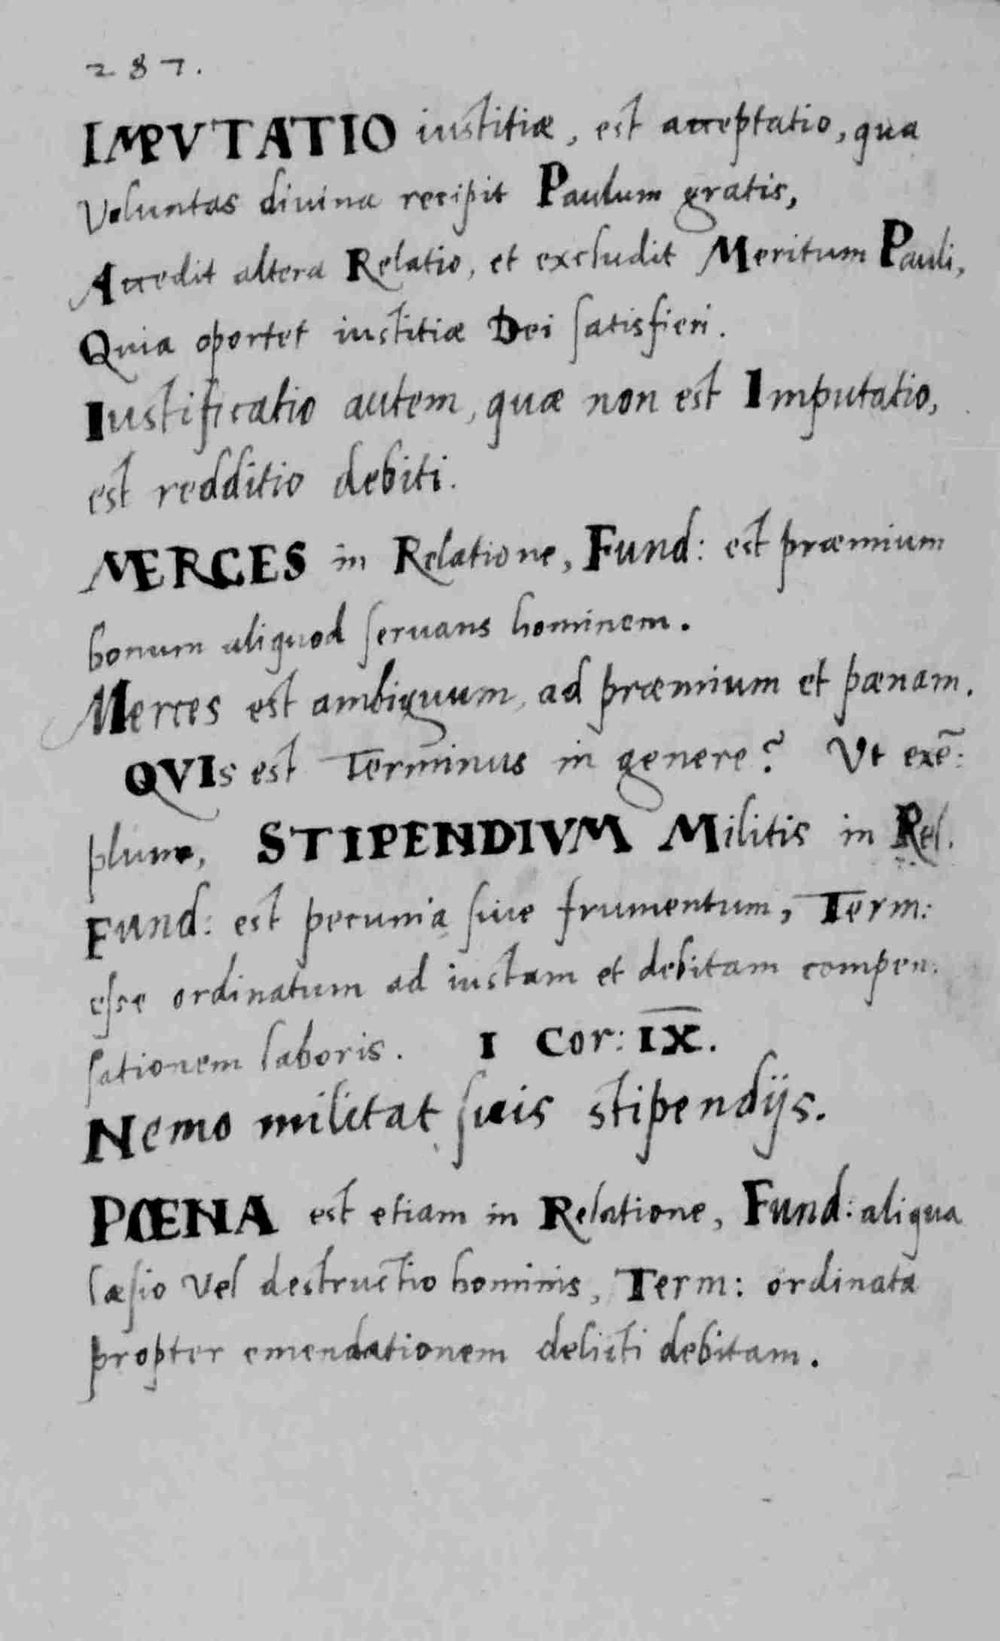 287.
IMPVTATIO iustitiæ, est acceptatio, qua
Voluntas diuina recipit Paulum gratis,
Accedit altera Relatio, et excludit Meritum Pauli,
Quia oportet iustitiæ Dei satisfieri.
Iustificatio autem, quæ non est Imputatio,
est redditio debiti.
MERCES in Relatione, Fund: est præmium
bonum aliquod seruans hominem.
Merces est ambiguum, ad præmium et pænam.
QVIs est Terminus in genere? Vt exē:
plum, STIPENDIVM Militis in Rel.
Fund: est pecunia siue frumentum, Term:
esse ordinatum ad iustam et debitam compen:
sationem laboris. I Cor: IX.
Nemo militat suis stipendijs.
PŒNA est etiam in Relatione, Fund: aliqua
læsio Vel destructio hominis, Term: ordinata
propter emendationem delicti debitam.